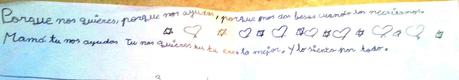 Porque nos quieres, porque nos ayudas, porque nos das besos cuando los necesitamos.
Mamá tu nos ayudas Tu nos quieres tu eres lo mejor. Y lo siento por todo.